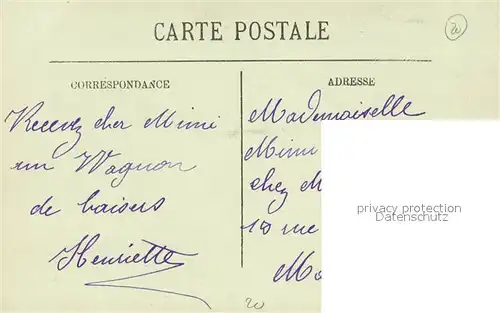 CARTE POSTALE
20
CORRESPONDANCE
ADRESSE
Recevez cher Mimi
un Wagnon
de baisers
Henriette
Mademoiselle
Mimi
chez M
10 rue
Ma
privacy protection
Datenschutz
20